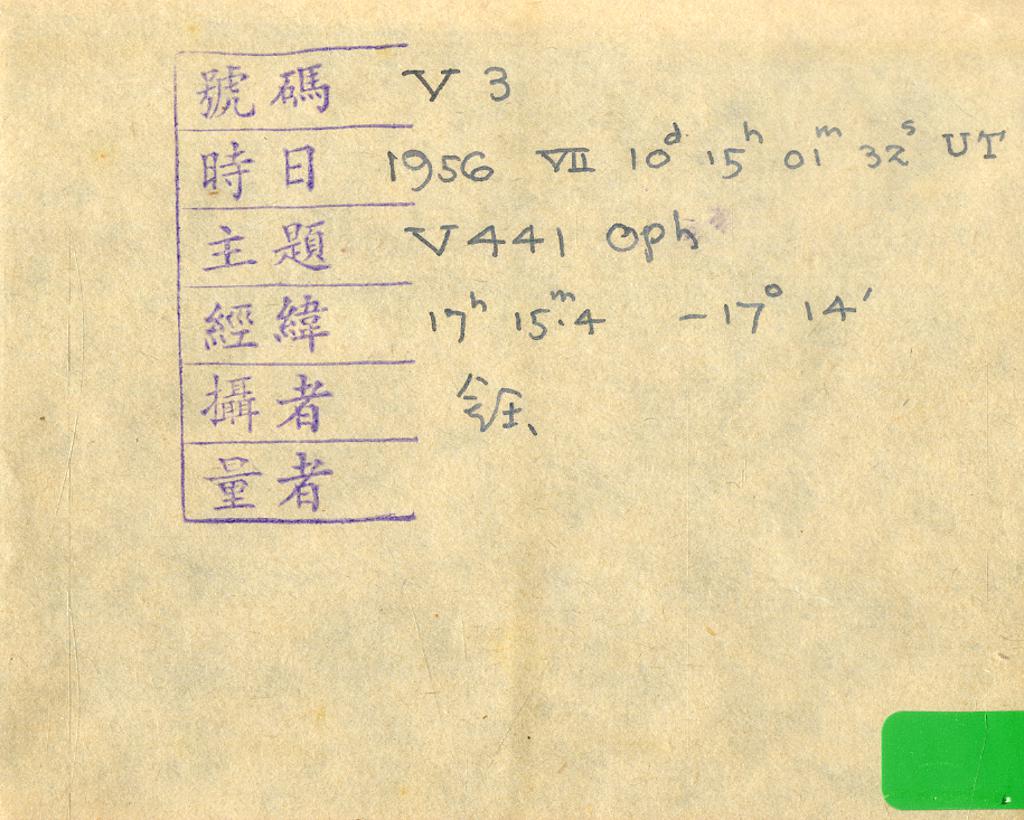 號碼 V 3
時日 1956 VII 10ᵈ 15ʰ 01ᵐ 32ˢ UT
主題 V441 Oph
經緯 17ʰ 15ᵐ.4 -17° 14′
攝者
量者